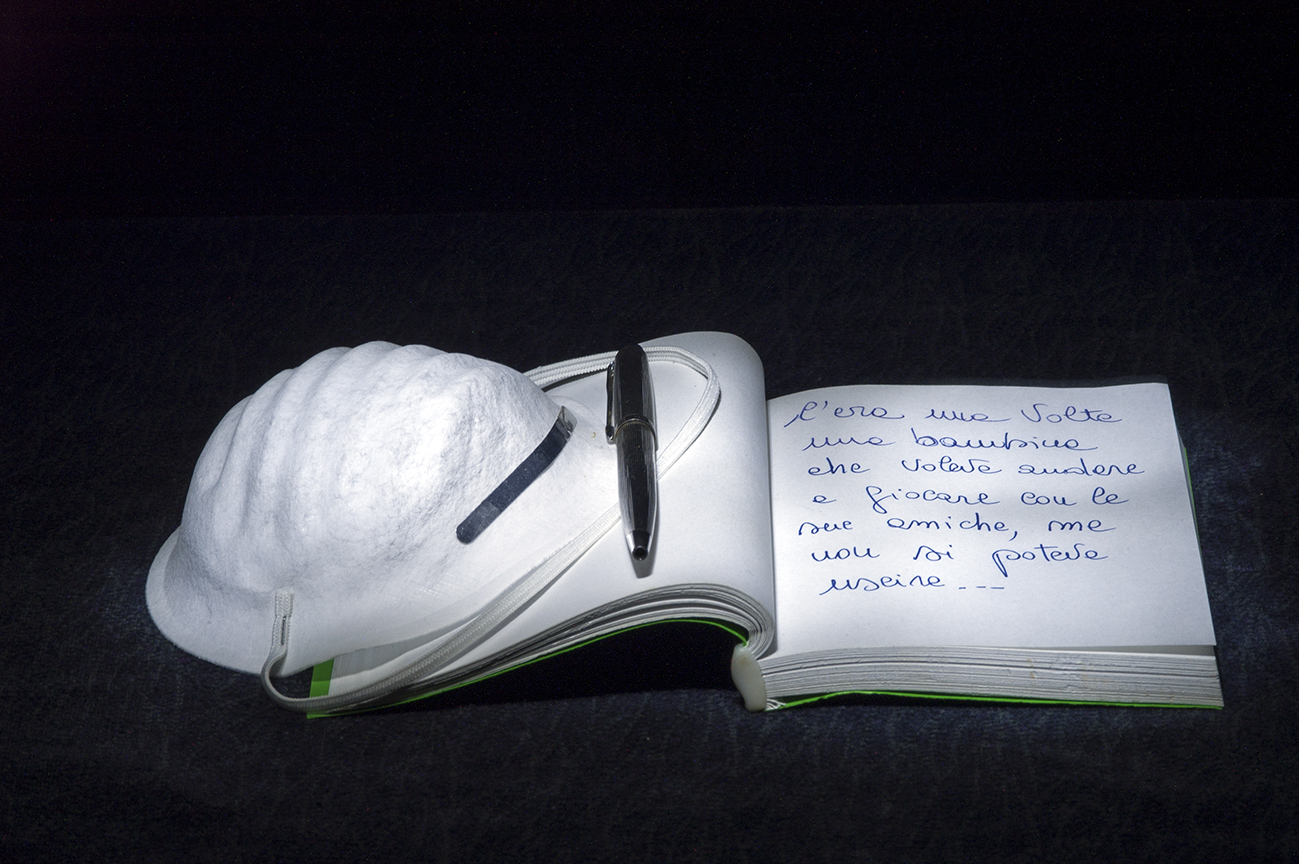 C'era una volta
una bambina
che voleva andare
a giocare con le
sue amiche, ma
non si poteva
uscire ---